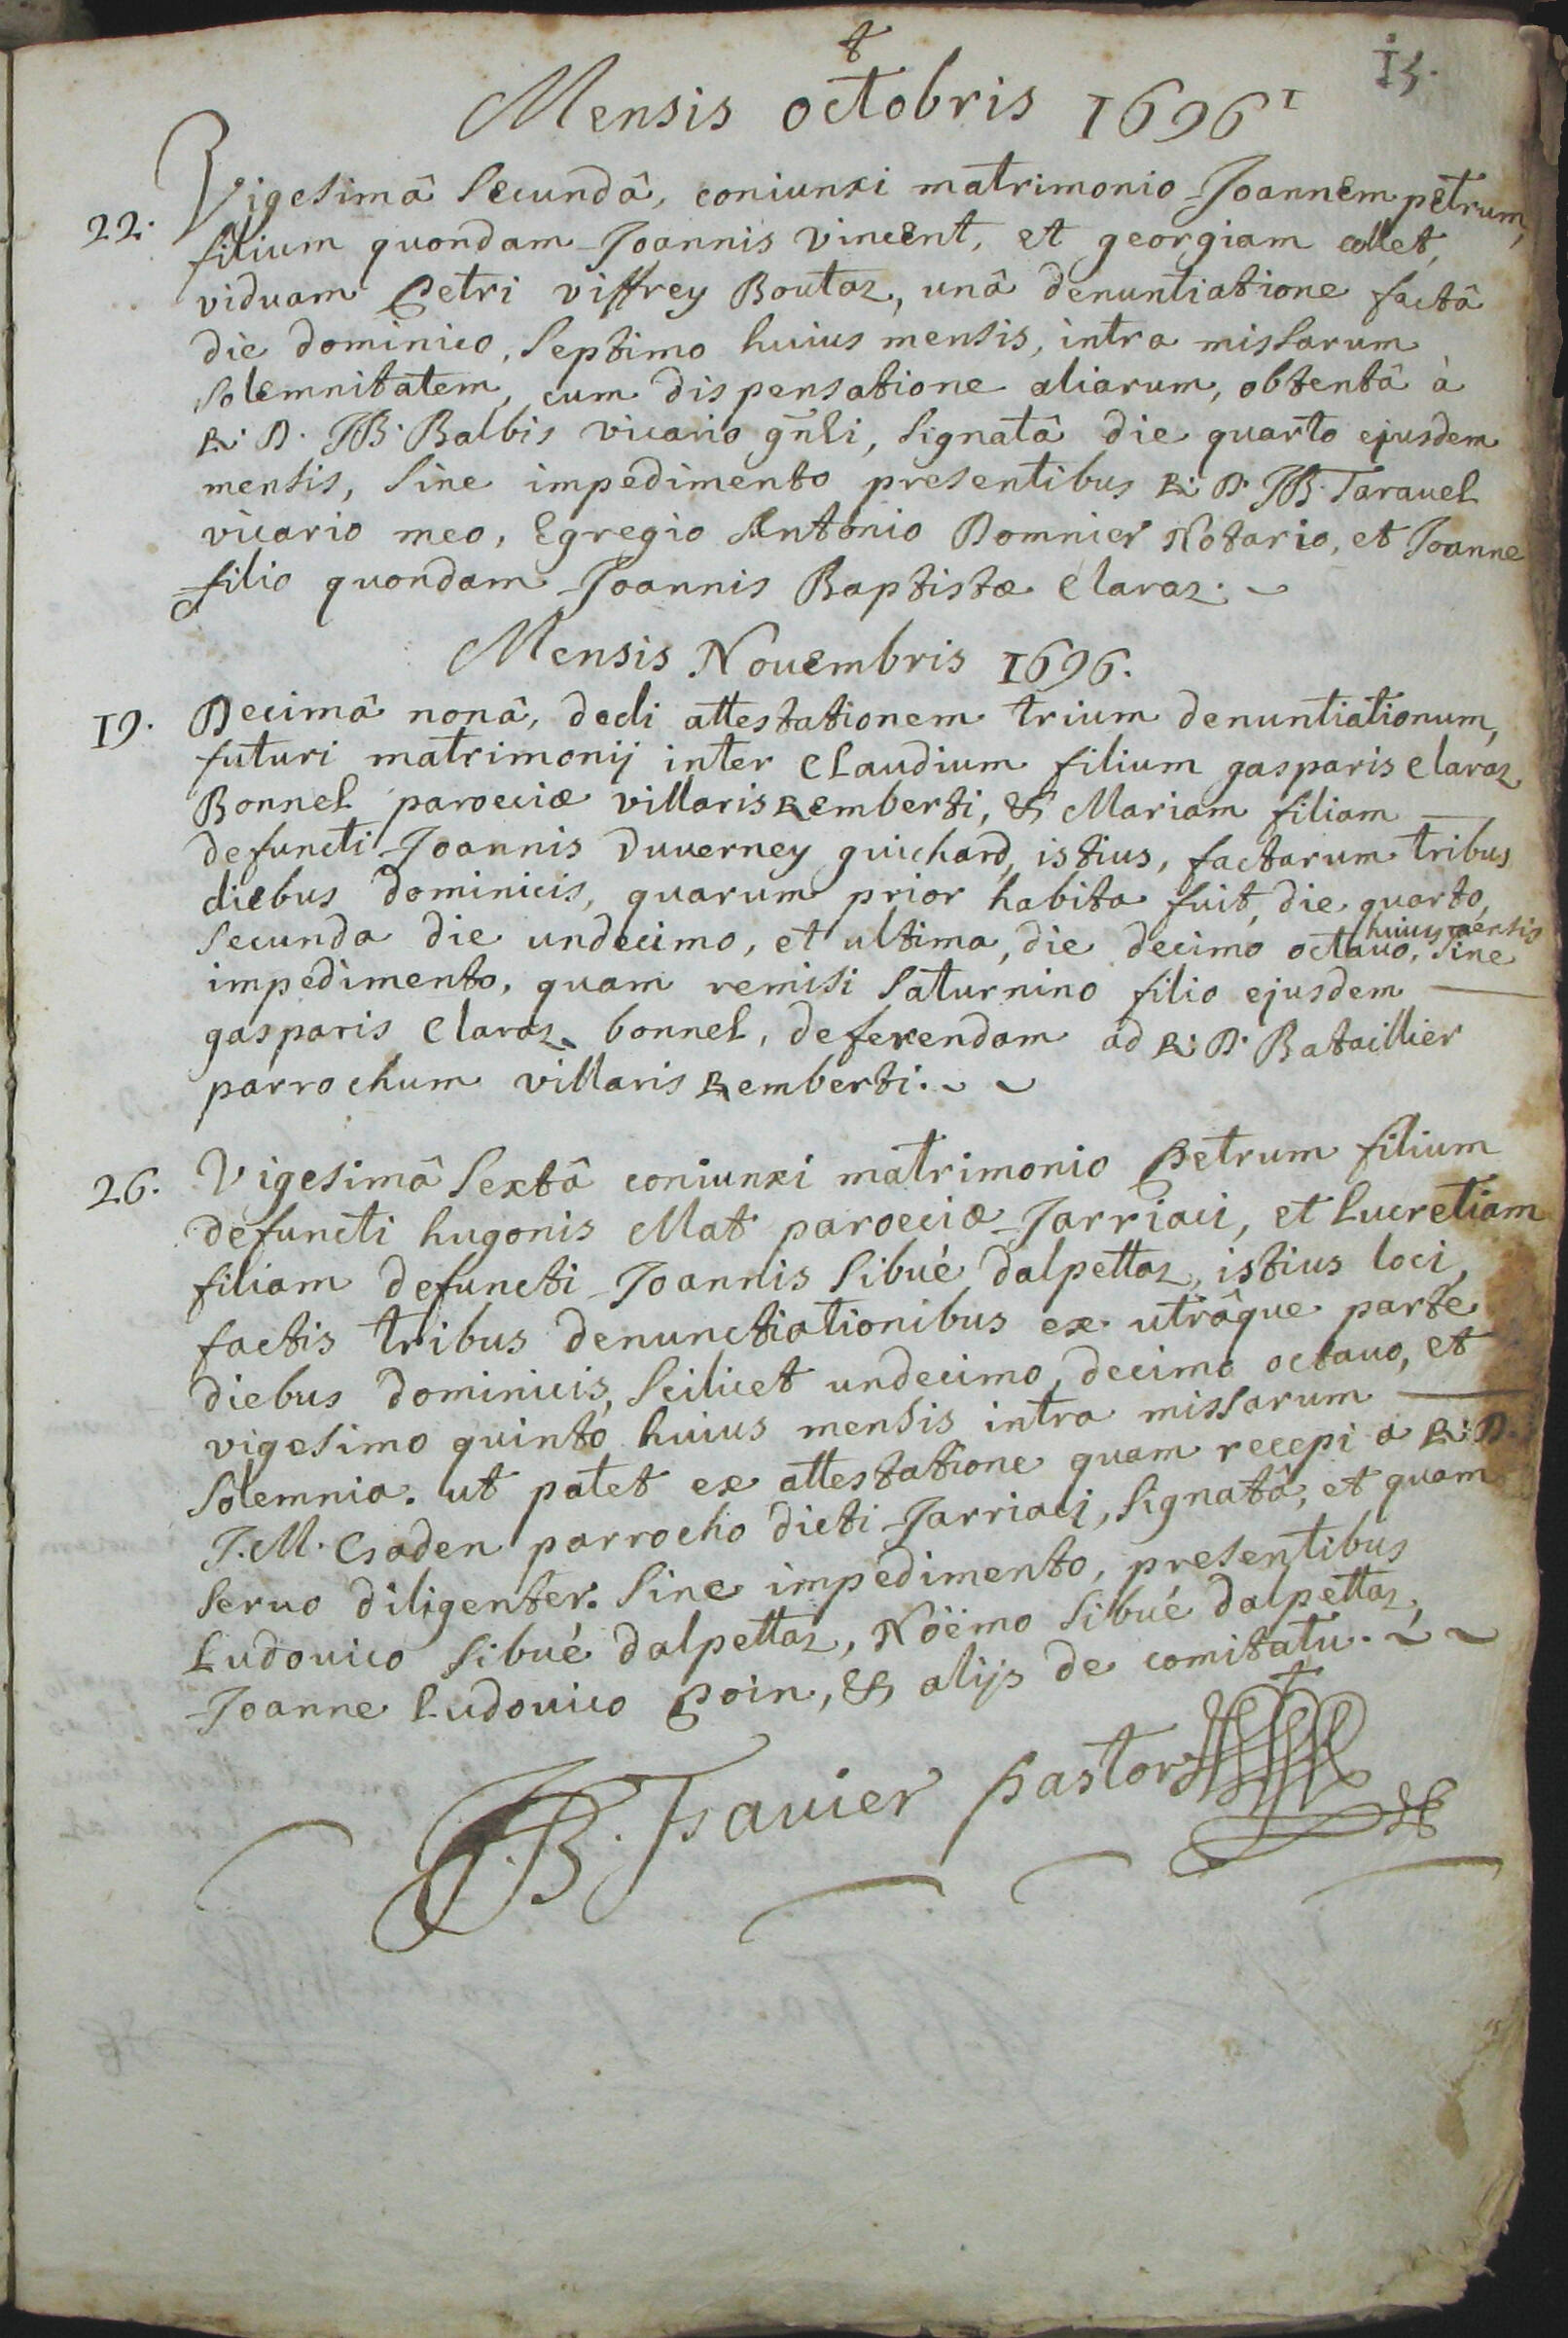 15.
Mensis octobris 1696
22. Vigesimâ secundâ, coniunxi matrimonio Joannem petrum,
filium quondam Joannis vincent, et georgiam collet,
viduam Petri viffrey Boutaz, unâ denuntiatione factâ
die dominico, septimo huius mensis, intra missarum
solemnitatem, cum dispensatione aliarum, obtentâ à
R: D. JB. Balbis vicario gñli, signatâ die quarto ejusdem
mensis, sine impedimento presentibus R: D. JB. Taravel
vicario meo, Egregio Antonio Domnier Notario, et Joanne
filio quondam Joannis Baptistæ Claraz.
Mensis Nouembris 1696.
19. Decimâ nonâ, dedi attestationem trium denuntiationum,
futuri matrimonij inter Claudium filium gasparis Claraz
Bonnel paroeciæ villaris Remberti, & Mariam filiam
defuncti Joannis Duverney guichard, istius, factarum tribus
diebus dominicis, quarum prior habita fuit, die quarto,
huius mensis
secunda die undecimo, et ultima, die decimo octauo, sine
impedimento, quam remisi saturnino filio ejusdem
gasparis Claraz bonnel, deferendam ad R: D. Bataillier
parrochum villaris Remberti.
26. Vigesimâ sextâ coniunxi matrimonio Petrum filium
defuncti hugonis Mat paroeciæ Jarriaci, et Lucretiam
filiam defuncti Joannis sibué dalpettaz, istius loci,
factis tribus denunctiationibus ex utrâque parte
diebus dominicis, scilicet undecimo, decimo octauo, et
vigesimo quinto huius mensis intra missarum
solemnia. ut patet ex attestatione quam recepi a R: D.
J. M. parrocho dicti Jarriaci, signatâ, et quam
seruo diligenter. sine impedimento, presentibus
Ludouico sibué dalpettaz, Nöémo sibué dalpettaz,
Joanne Ludouico Poin, & alijs de comitatu.
JB. pastor